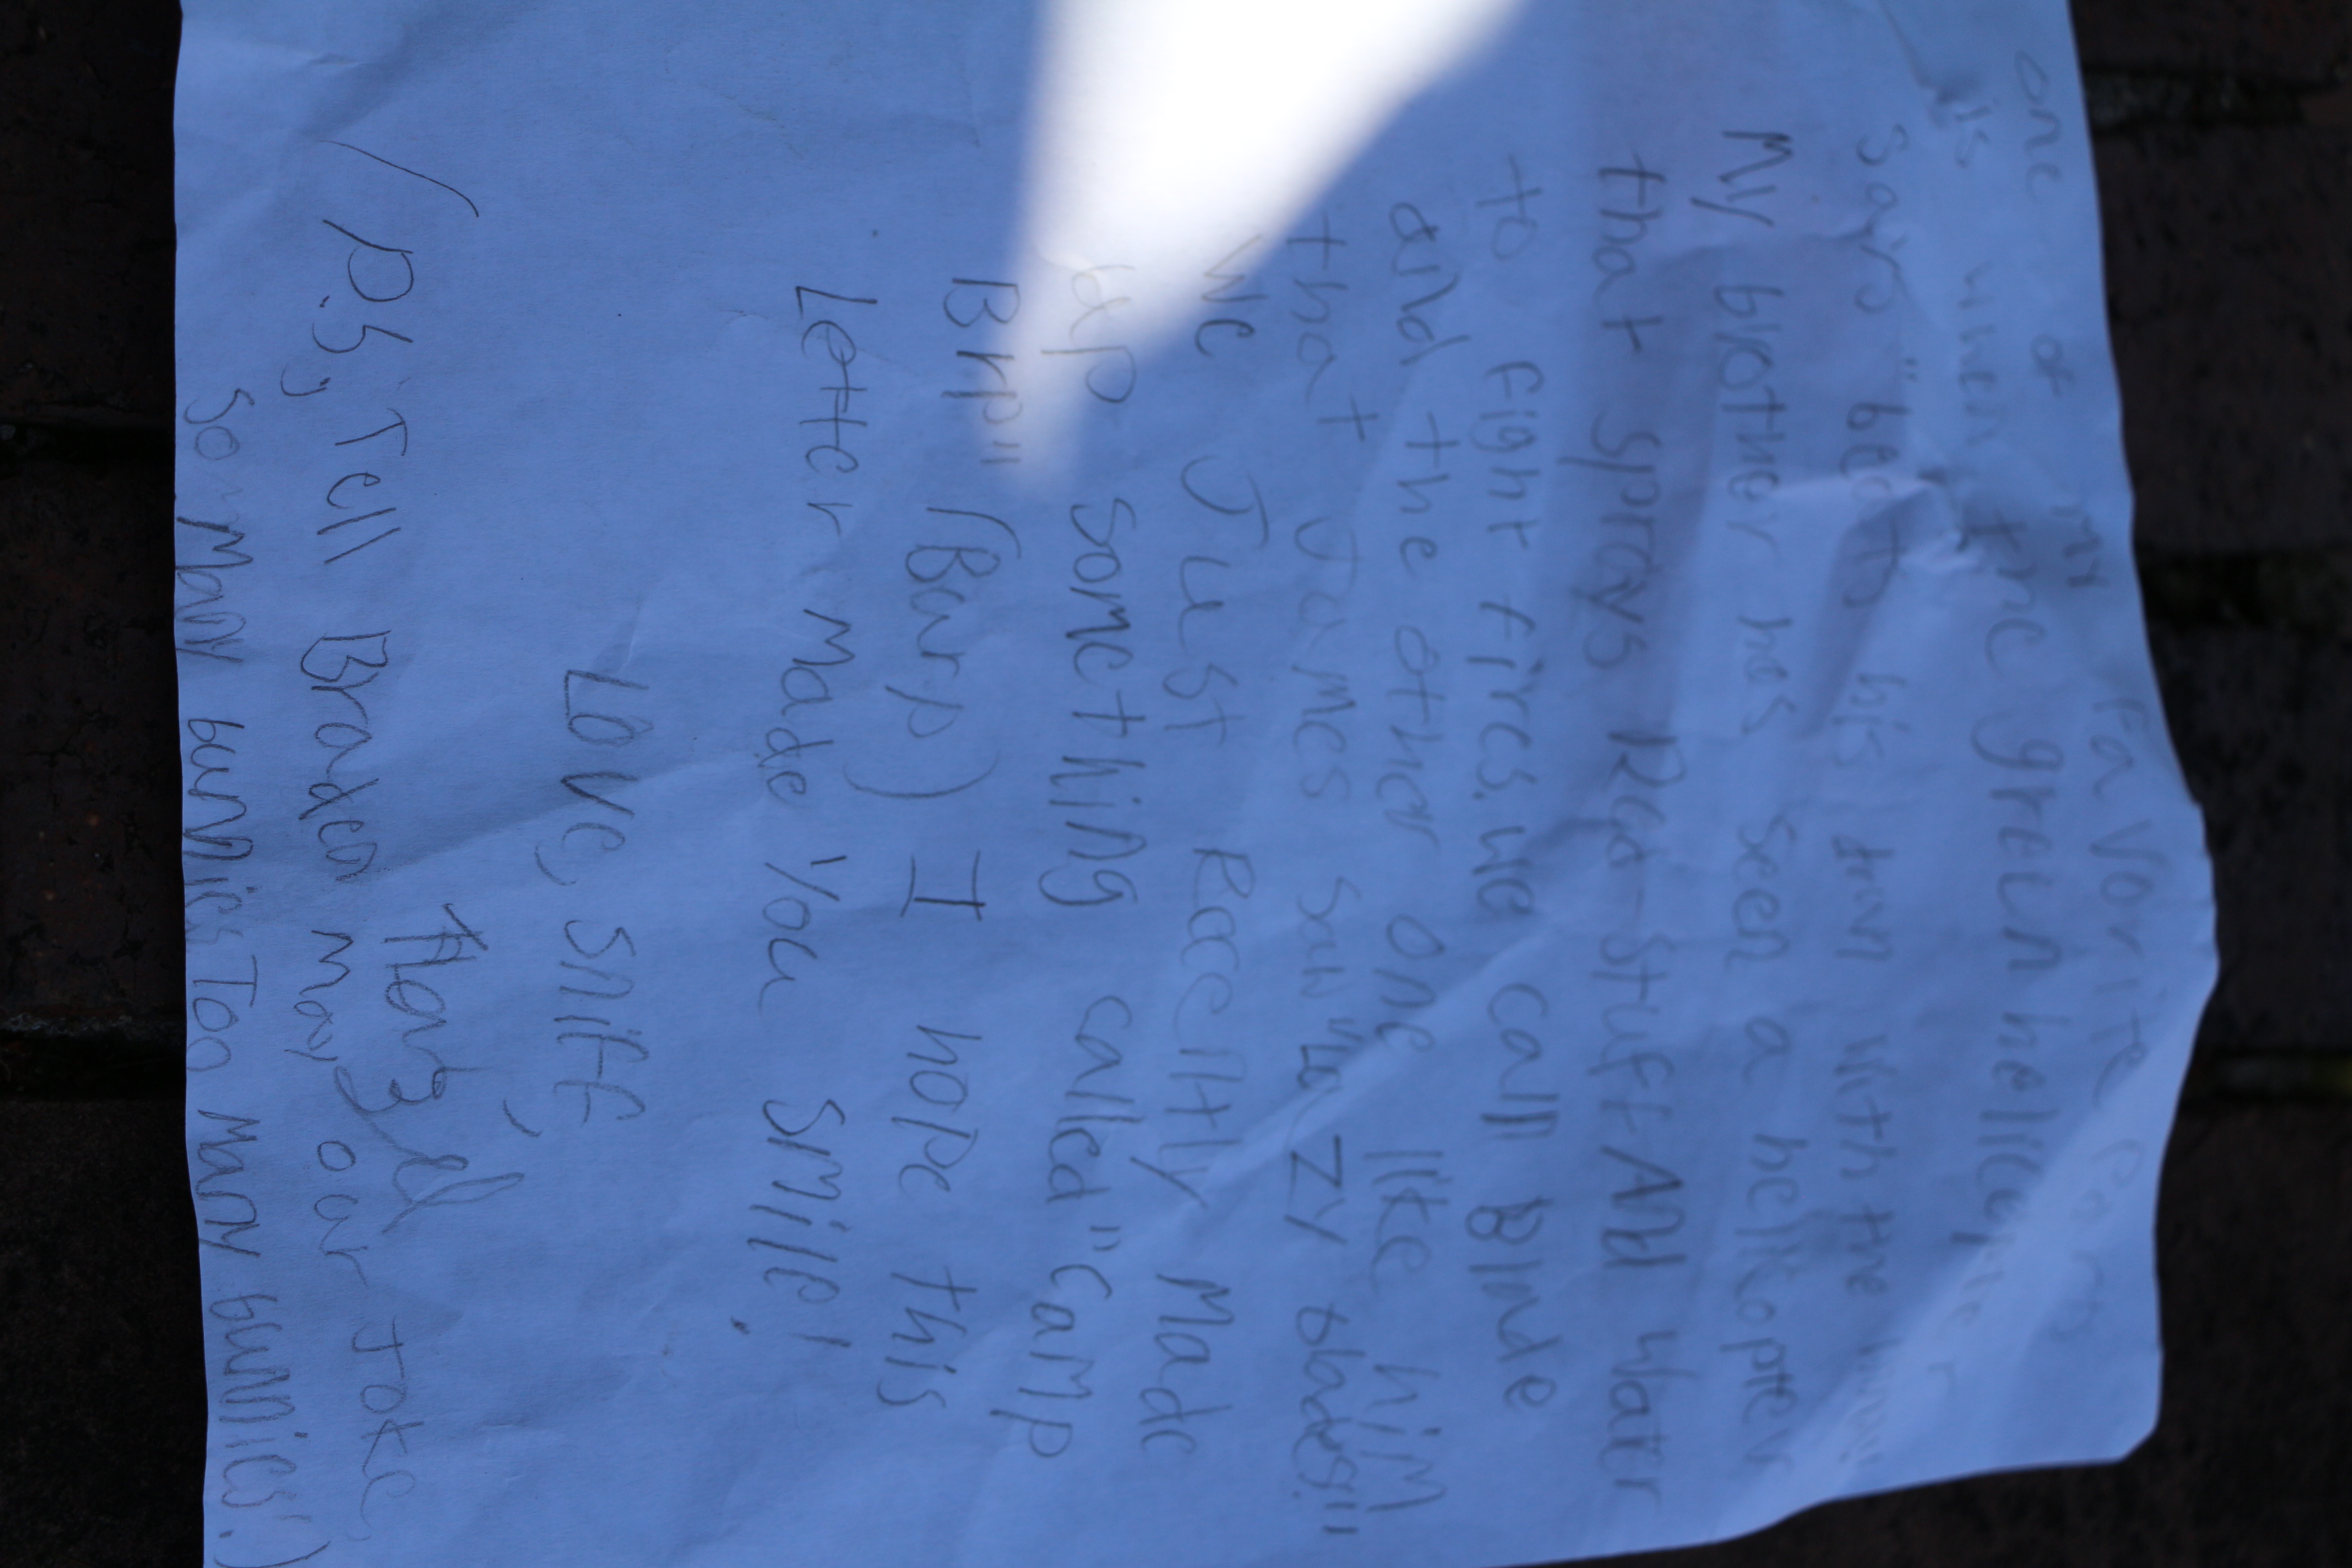 one of my favorite parts
is when the green helicopter
says " be to his twin with the
My brother has seen a helicopter
that sprays Red-stuff And water
to fight fires. we call Blade
and the other one like him
that James saw "wzy blades"
we Just Receltly Made
up something called "Camp
Brp" (Barp) I hope this
Letter made you smile!
Love, sniff,
Hazel
(P.S, Tell Braden may our Joke,
so many bunnies Too many bunnies!)